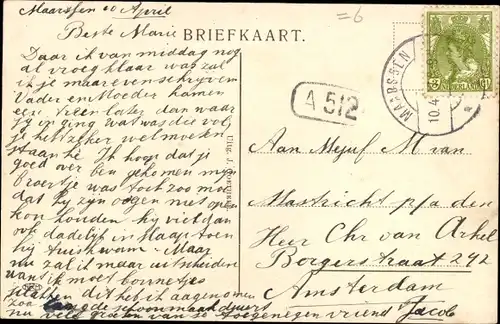 Maarssen 10 April
=6
Beste Marie
BRIEFKAART.
Daar ik van middag nog
al vroeg klaar was zal
ik je maar even schrijven
Vader en Moeder kamen
een trein later dan waar
jij in ging wat was die vol
je hebt zeker wel moeten
staan he Ik hoop dat je
goed over ben gekomen mijn
Broertje was toch zoo moe
dat hij zijn oogen niet open
kon houden hij viel dan
ook dadelijk in slaap toen
hij thuis kwam Maar
nu zal ik maar uitscheiden
want ik moet boonetjes
dit heb ik aangenomen
zoo lang de schoonmaak duurt
nu veel groeten van je toegenegen vriend Jacob
A 512
MAARSSEN
10.4
NEDERLAND
Uitg. J.
Aan Mejuf M van
Mastricht p/a den
Heer Chr van Arkel
Borgerstraat 242
Amsterdam